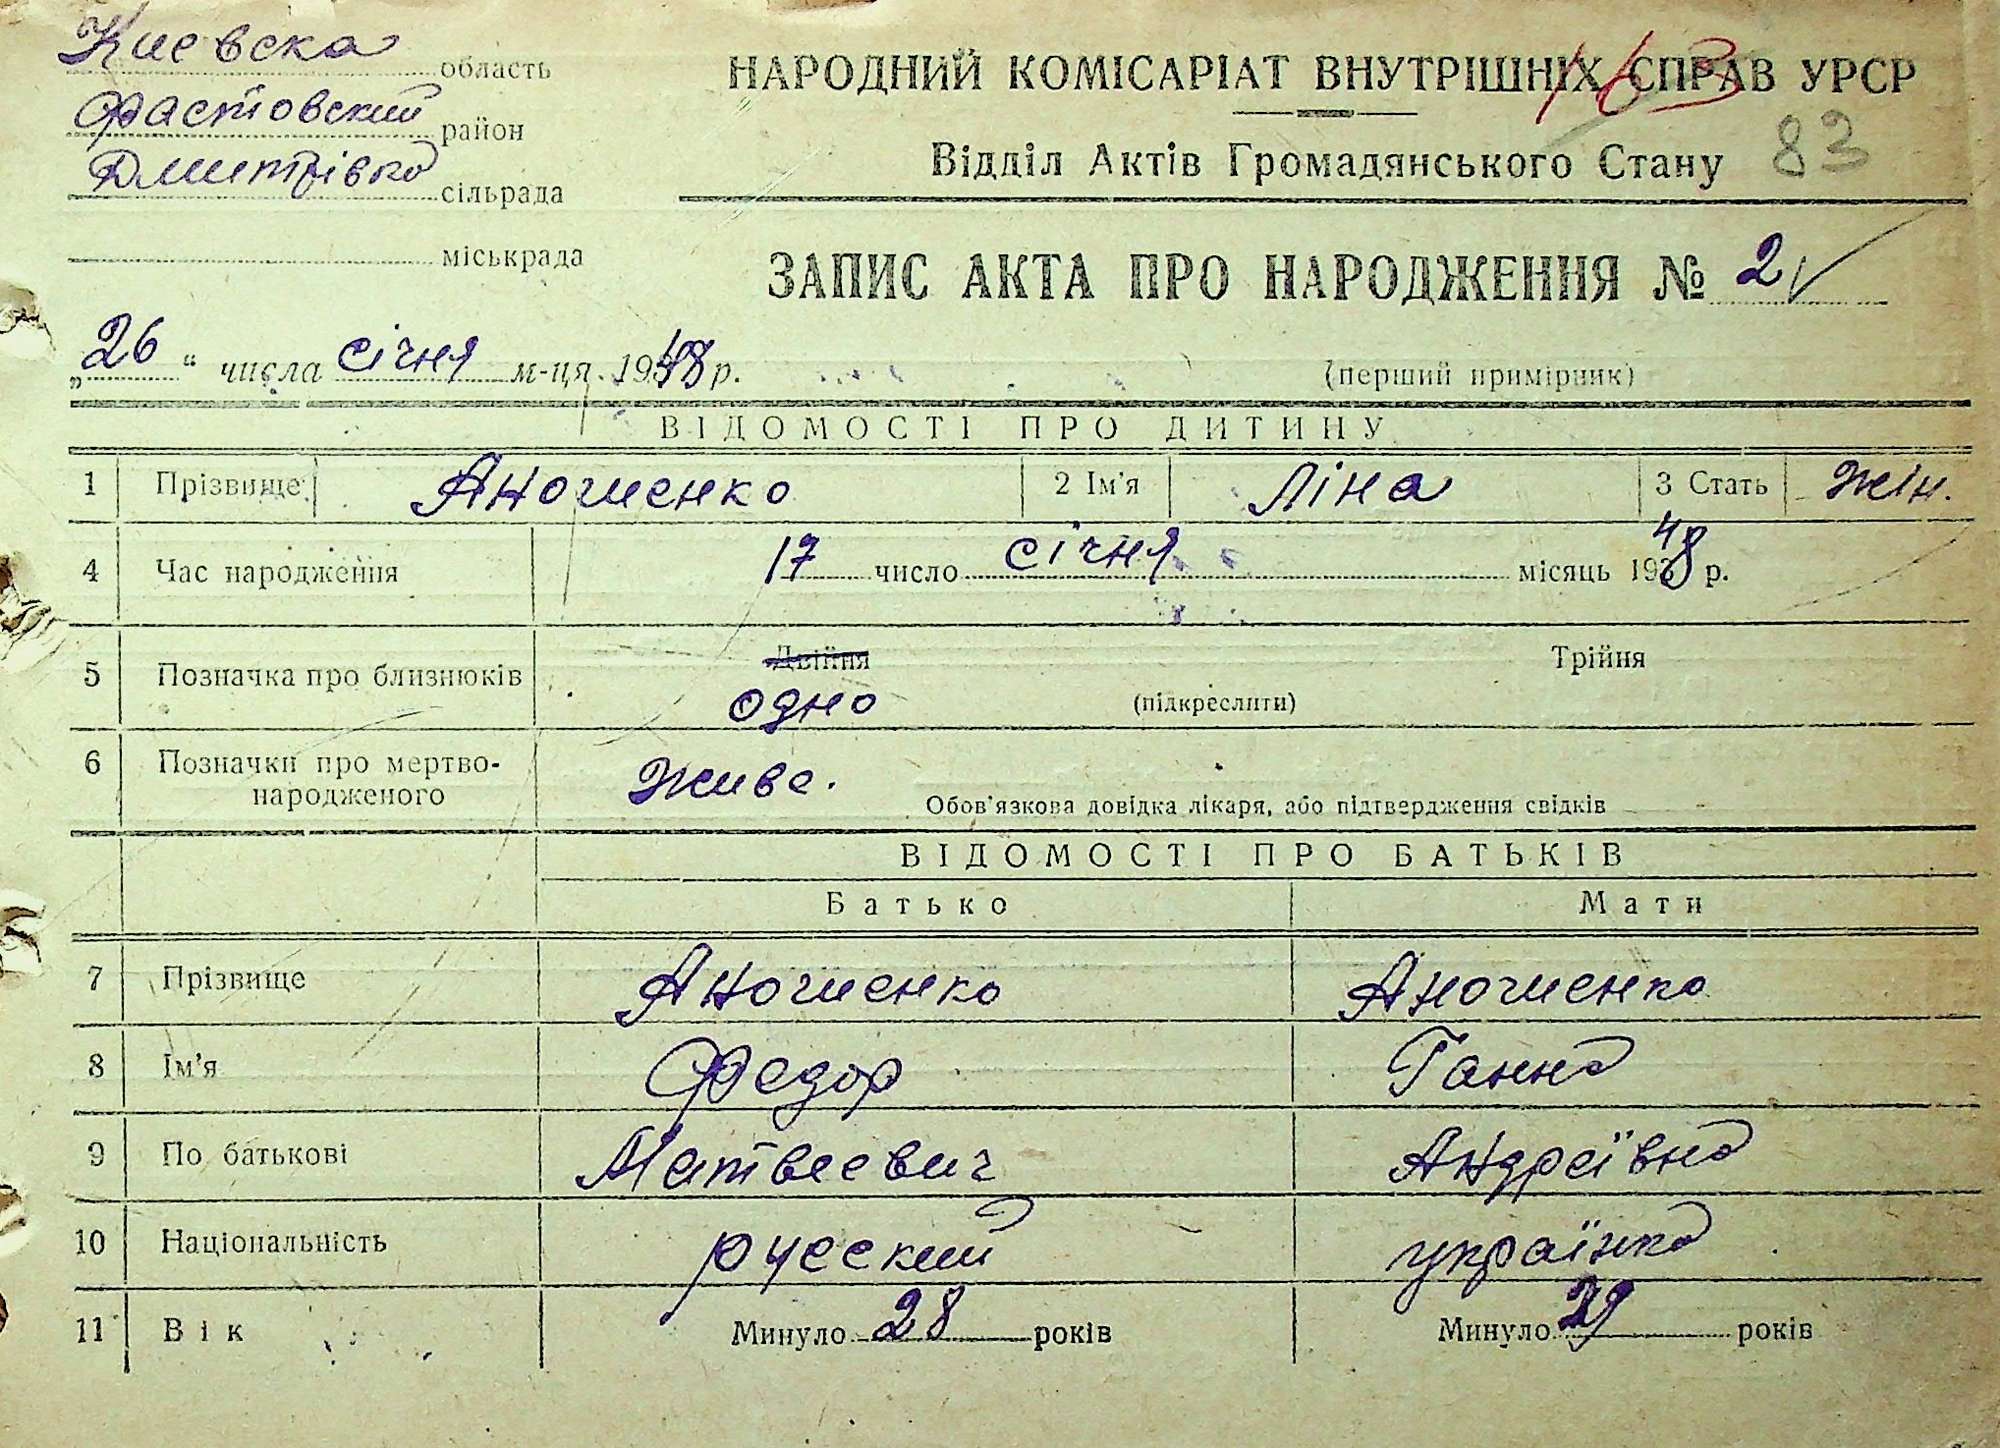 Киевска область
НАРОДНИЙ КОМІСАРІАТ ВНУТРІШНІХ СПРАВ УРСР
163
Фастовский район
Відділ Актів Громадянського Стану 83
Дмитрівка сільрада
міськрада
ЗАПИС АКТА ПРО НАРОДЖЕННЯ № 2
„26“ числа січня м-ця 1948 р.
(перший примірник)
ВІДОМОСТІ ПРО ДИТИНУ
1 Прізвище Аночиенко 2 Ім'я Ліна 3 Стать жін.
4 Час народження 17 число січня місяць 1948 р.
5 Позначка про близнюків Двійня Трійня
одно (підкреслити)
6 Позначки про мертво-
народженого живе. Обов'язкова довідка лікаря, або підтвердження свідків
ВІДОМОСТІ ПРО БАТЬКІВ
Батько Мати
7 Прізвище Аночиенко Аночиенко
8 Ім'я Федор Ганна
9 По батькові Матвеевич Андреївна
10 Національність русский українка
11 Вік Минуло 28 років Минуло 29 років